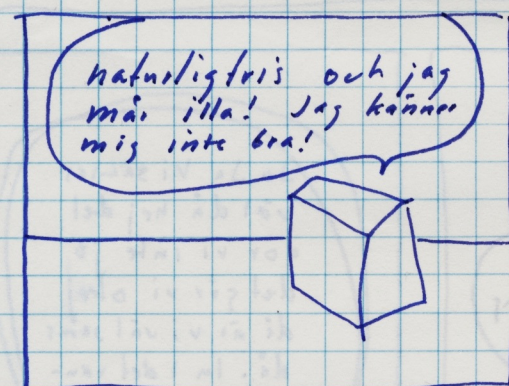 naturligtvis och jag
mår illa! Jag känner
mig inte bra!